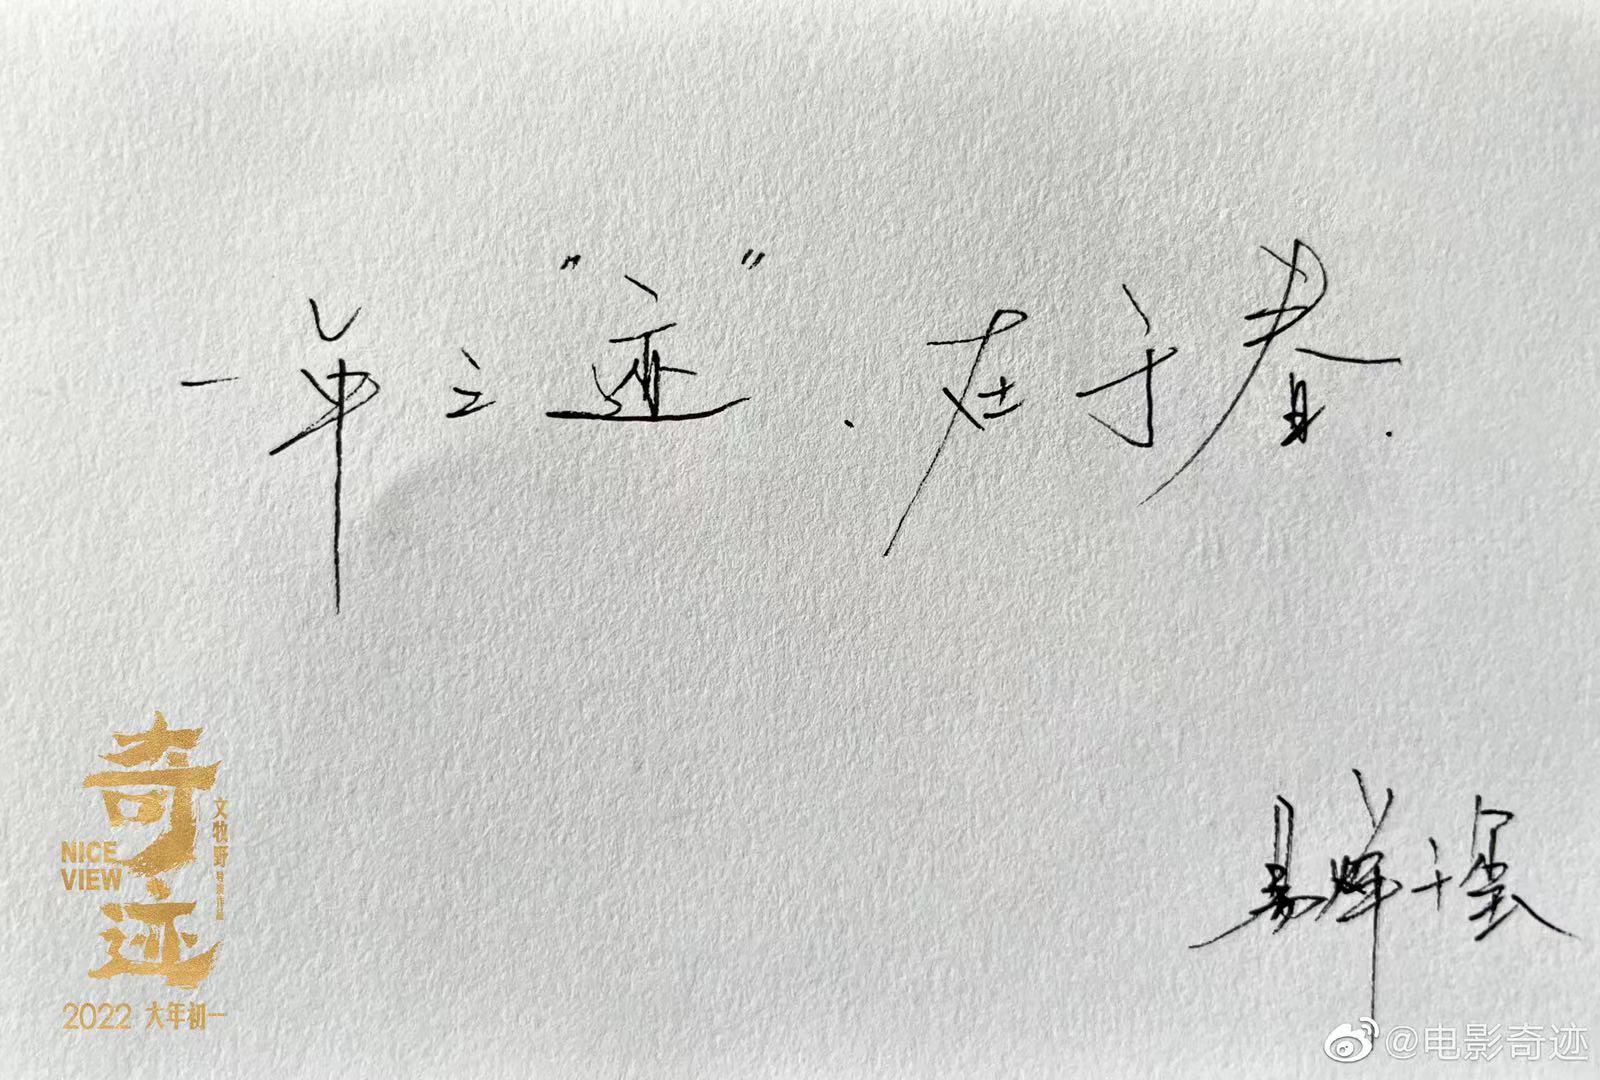 一年之"迹".在于春.
易烊千玺
奇迹
NICE
VIEW
文牧野导演作品
2022 大年初一
@电影奇迹